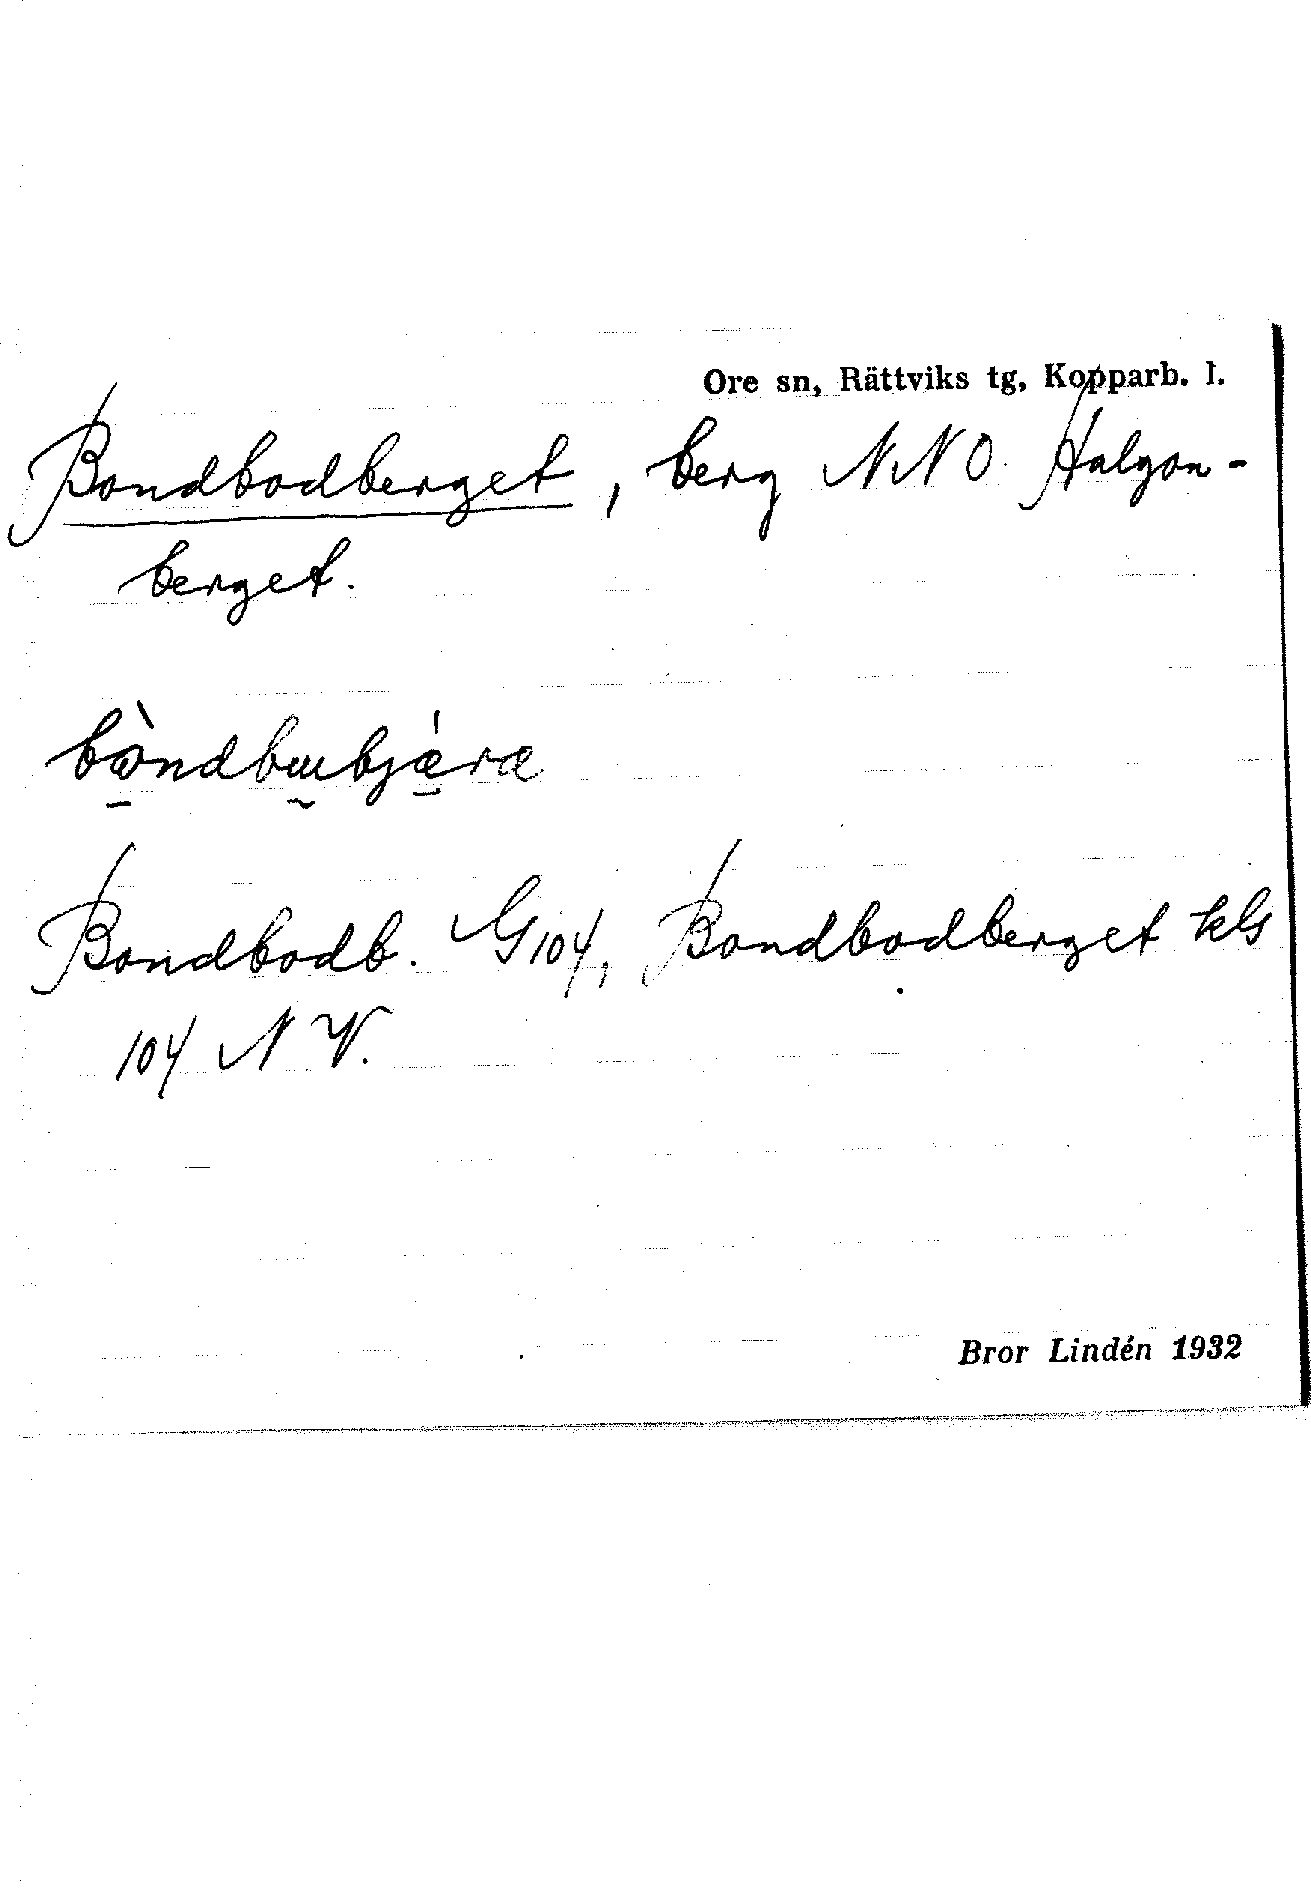 Ore sn, Rättviks tg, Kopparb. l.
Bondbodberget, berg NNO Halgon-
berget.
Bondbodb. G104, Bondbodberget kls
104 NV.
Bror Lindén 1932